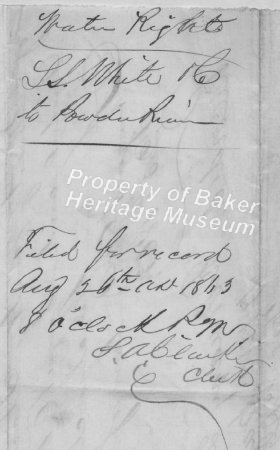 Water Rights
L.L. White &C
to Powder River
Property of Baker
Heritage Museum
Filed for record
Aug 26th AD. 1863
8 o'clock P.M.
Clerk